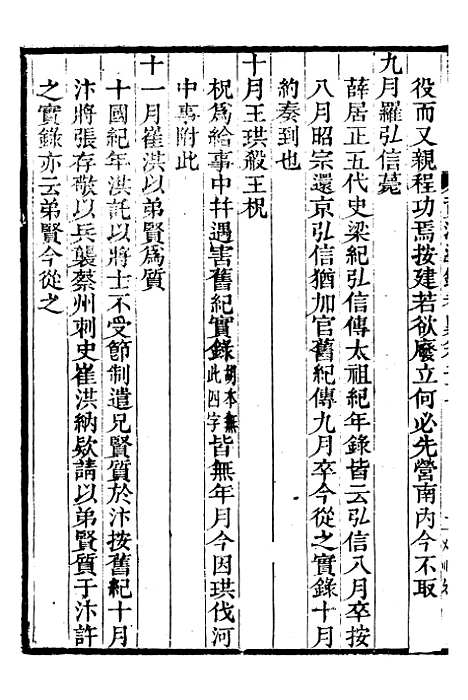 役而又親程功焉按建若欲廢立何必先營南內今不取
九月羅弘信薨
薛居正五代史梁紀弘信傳太祖紀年錄皆云弘信八月卒按
八月昭宗還京弘信猶加官舊紀傳九月卒今從之實錄十月
約奏到也
十月王珙殺王柷
柷爲給事中幷遇害舊紀實錄胡本無此四字皆無年月今因珙伐河
中事附此
十一月崔洪以弟賢爲質
十國紀年洪託以將士不受節制遣兄賢質於汴按舊紀十月
汴將張存敬以兵襲蔡州刺史崔洪納欵請以弟賢質于汴許
之實錄亦云弟賢今從之